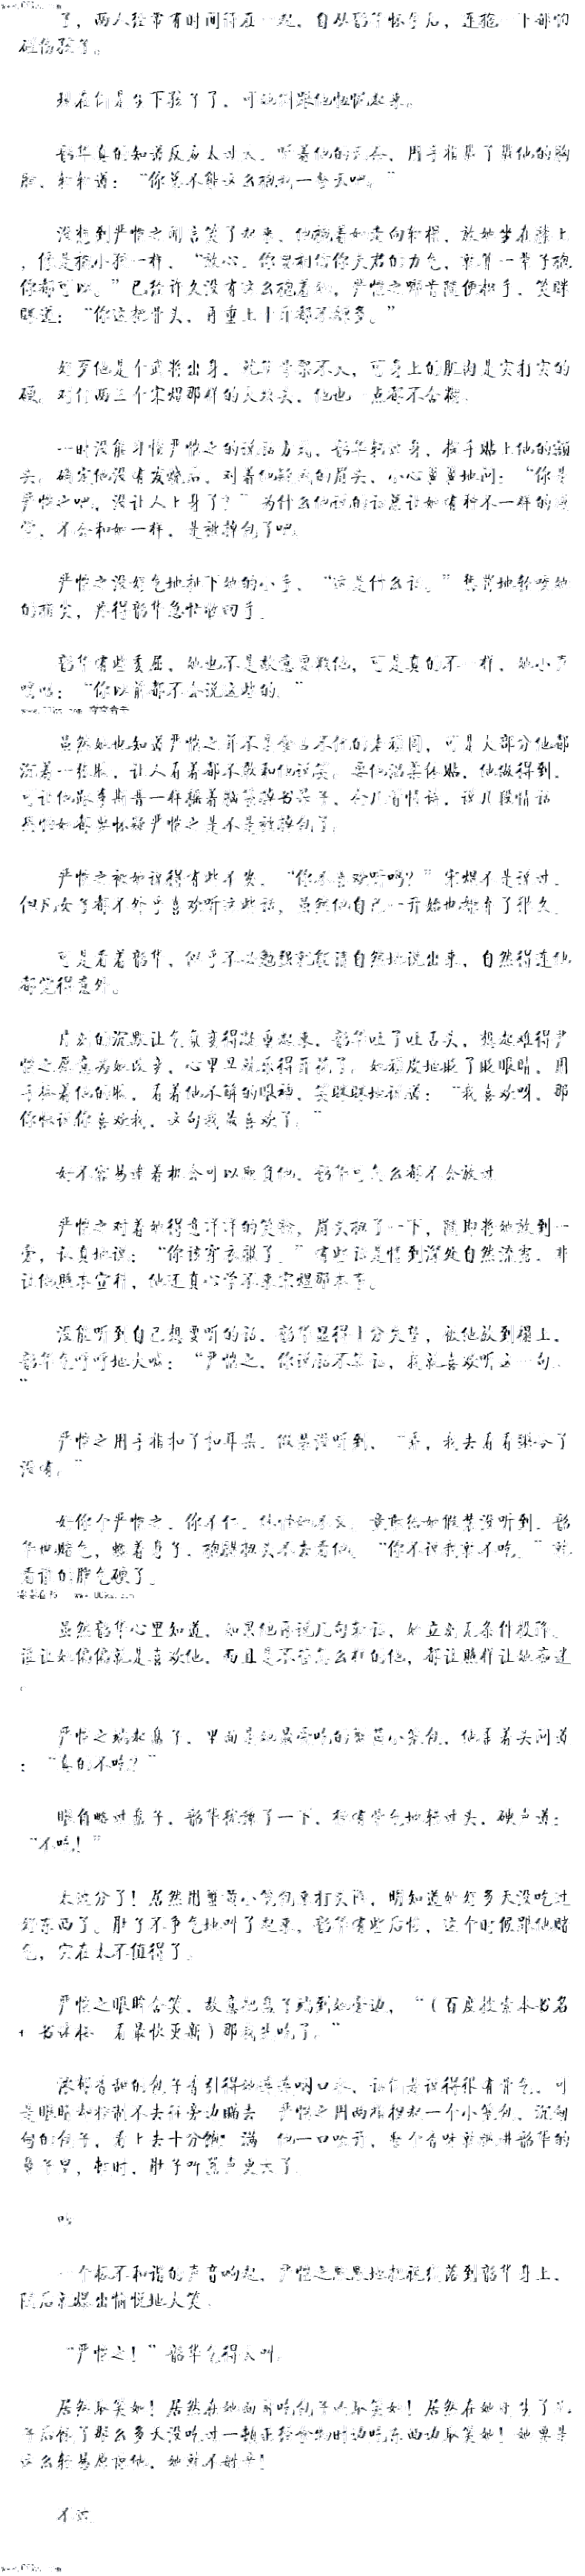 了，两人经常有时间待在一起，自从韶华怀孕后，连拖一下都怕
碰伤孩子。
现在倒是生下孩子了，可她倒跟他忸怩起来。
韶华真的知道反应太过大，听着他的
，轻轻道：“你总不能这么抱我一整天吧。”
没想到严恺之闻言笑了起来，他抱着她走向软榻，放她坐在膝上
，像是抱小孩一样，“放心，你要相信你夫君的力气，就算一辈子抱
你都可以。”已经许久没有这么抱着她，严恺之哪肯随便松手，笑眯
眯道：“你这把骨头，再重上十斤都不嫌多。”
好歹他是个武将出身，就算骨架不大，可身上的肌肉是实打实的
硬，对付两三个宋煜那样的大块头，他也一点都不含糊。
一时没能习惯严恺之的说话方式，韶华转过身，探手贴上他的额
头，确定他没有发烧后，对着他疑惑的眉头，小心翼翼地问：“你是
严恺之吧，没让人上身了？”为什么他说的话总让她有种不一样的感
觉，不会和她一样，是被掉包了吧。
严恺之没好气地扯下她的小手，“这是什么话。”惩罚地轻咬她
的指尖，惹得韶华急忙收回手。
韶华有些委屈，她也不是故意要
，可是真的不一样，她小声
嘀咕：“你以前都不会说这些的。”
虽然她也知道严恺之并不是
，可是大部分他都
沉着一张脸，让人看着都不敢和他说笑。要他温柔体贴，他做得到，
可让他跟李斯晋一样摇着脑袋掉书袋子，念几首情诗，说几段情话
，恐怕她都要怀疑严恺之是不是被掉包了。
严恺之被她说得有些不爽，“你不喜欢听吗？”宋煜不是说过，
但凡女子都不外乎喜欢听这些话，虽然他自己一开始也别扭了很久。
可是看着韶华，似乎不必勉强就能很自然地说出来，自然得连他
都觉得意外。
片刻的沉默让气氛变得凝重起来，韶华吐了吐舌头，想起难得严
恺之愿意为她改变，心里早就乐得开花了。她俏皮地眨了眨眼睛，用
手捧着他的脸，看着他不解的眼神，笑眯眯地说道：“我喜欢呀，那
你快说你喜欢我，这句我最喜欢了。”
好不容易逮着机会可以欺负他，韶华可怎么都不会放过。
严恺之对着她得意洋洋的笑脸，眉头挑了一下，随即将她放到一
旁，认真地说：“你该穿衣服了。”有些话是情到深处自然流露，非
让他照本宣科，他还真心学不来宋煜那本事。
没能听到自己想要听的话，韶华显得十分失望，被他放到榻上，
韶华气呼呼地大喊：“严恺之，你说话不算话，我就喜欢听这一句。
”
严恺之用手指扣了扣耳朵，假装没听到，“乖，我去看看粥好了
没有。”
好你个严恺之，你不仁，休怪她不义，竟敢给她假装没听到。韶
华也赌气，蜷着身子，抱膝扭头不去看他，“你不说我就不吃。”
虽然韶华心里知道，如果他再说几句好话，她立刻无条件投降。
谁让她偏偏就是喜欢他，而且是不管怎么样的他，都让照样让她着迷
。
严恺之端起盘子，里面是她最爱吃的蟹黄小笼包，他歪着头问道
：“真的不吃？”
眼角略过盘子，韶华犹豫了一下，极有骨气地转过头，硬声道：
“不吃！”
太过分了！居然用蟹黄小笼包来打头阵，明知道她好多天没吃过
好东西了。肚子不争气地叫了起来，韶华有些后悔，这个时候跟他赌
气，实在太不值得了。
严恺之眼眸含笑，故意把盘子端到她旁边，“（百度搜索本书名
+ 书译栋 看最快更新）那我先吃了。”
浓郁香甜的包子香引得她连连咽口水，话倒是说得很有骨气，可
是眼睛却控制不去往旁边瞄去。严恺之用两指捏起一个小笼包，沉甸
甸的包子，看上去十分饱满，他一口咬开，整个香味就飘进韶华的
鼻子里，顿时，肚子叫嚣声更大了。
一个极不和谐的声音响起，严恺之默默地把视线落到韶华身上，
随后就爆出愉悦地大笑。
“严恺之！”韶华气得大叫。
居然取笑她！居然在她面前吃包子还取笑她！居然在她
饿了那么多天没吃过一顿正经食物时边吃东西边取笑她！她要是
这么轻易原谅他，她就不姓辛！
不过